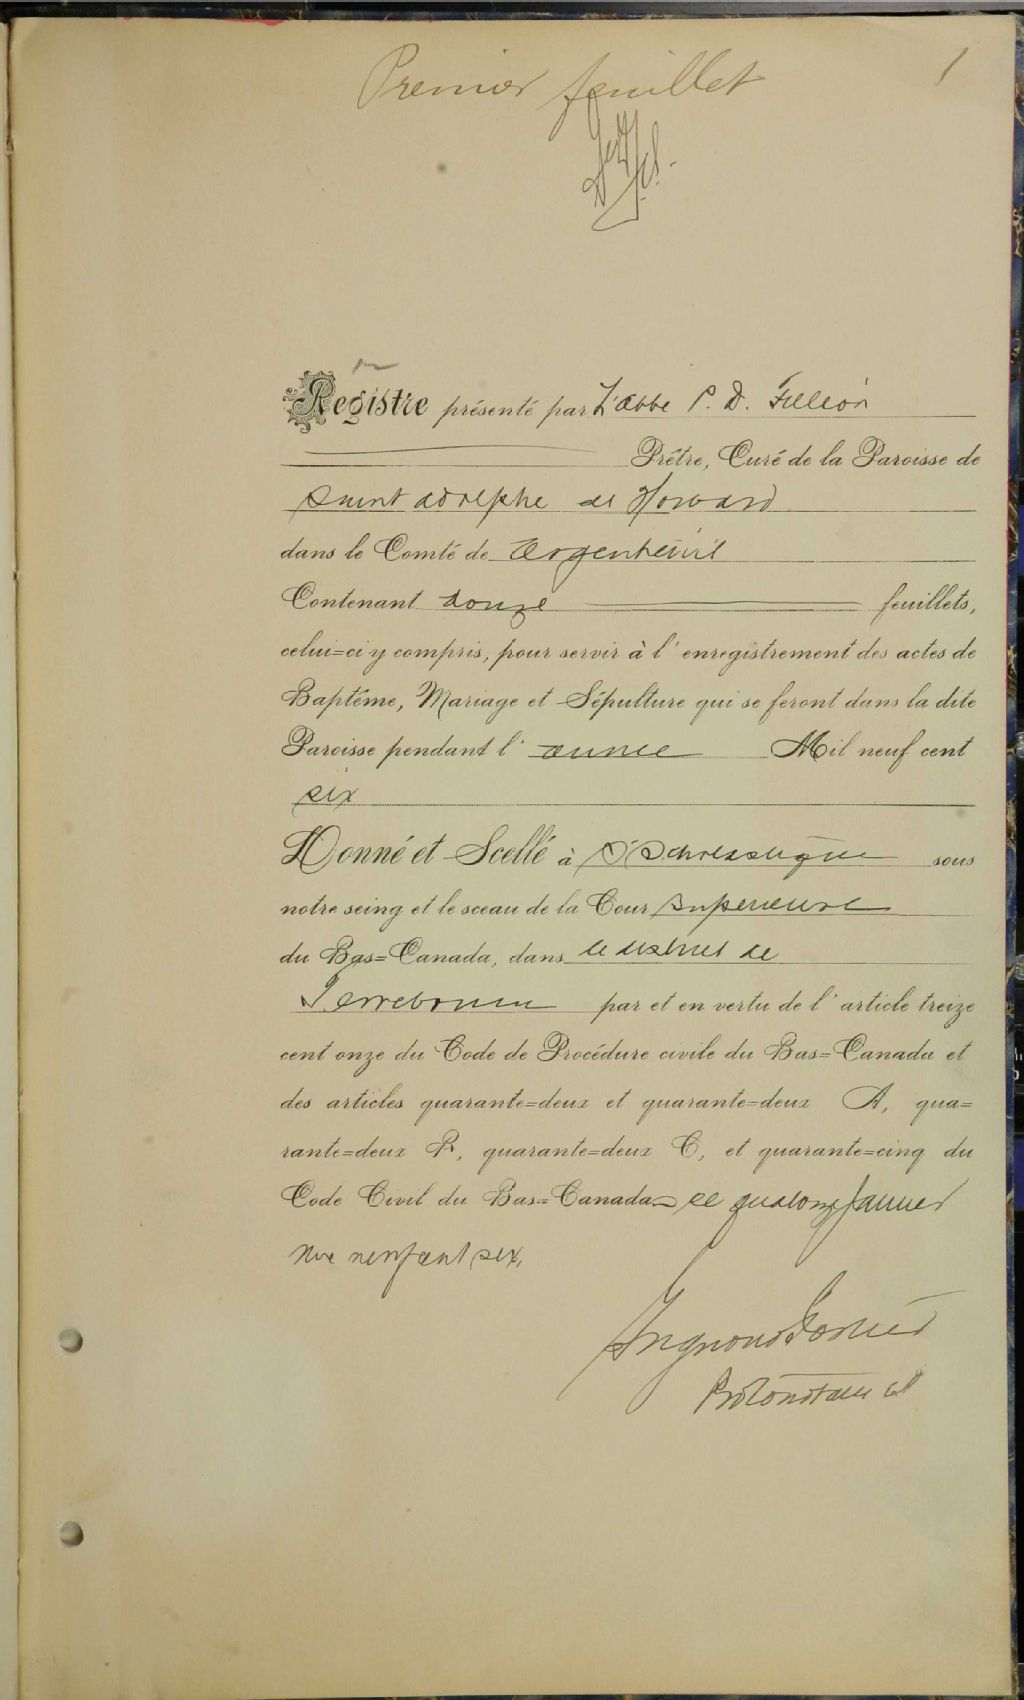 Premier feuillet 1
Registre présenté par L'abbe P. D. Fillion
Prêtre, Curé de la Paroisse de
Saint adolphe de Howard
dans le Comté de Argenteuil
Contenant douze feuillets,
celui=ci y compris, pour servir à l'enregistrement des actes de
Baptême, Mariage et Sépulture qui se feront dans la dite
Paroisse pendant l'annee Mil neuf cent
six
Donné et Scellé à St Scholastique sous
notre seing et le sceau de la Cour superieure
du Bas=Canada, dans le district de
Terrebonne par et en vertu de l'article treize
cent onze du Code de Procédure civile du Bas=Canada et
des articles quarante=deux et quarante=deux A, qua=
rante=deux B, quarante=deux C, et quarante=cinq du
Code Civil du Bas=Canada ce quatorze Janvier
neufcent six.
Protonotaire